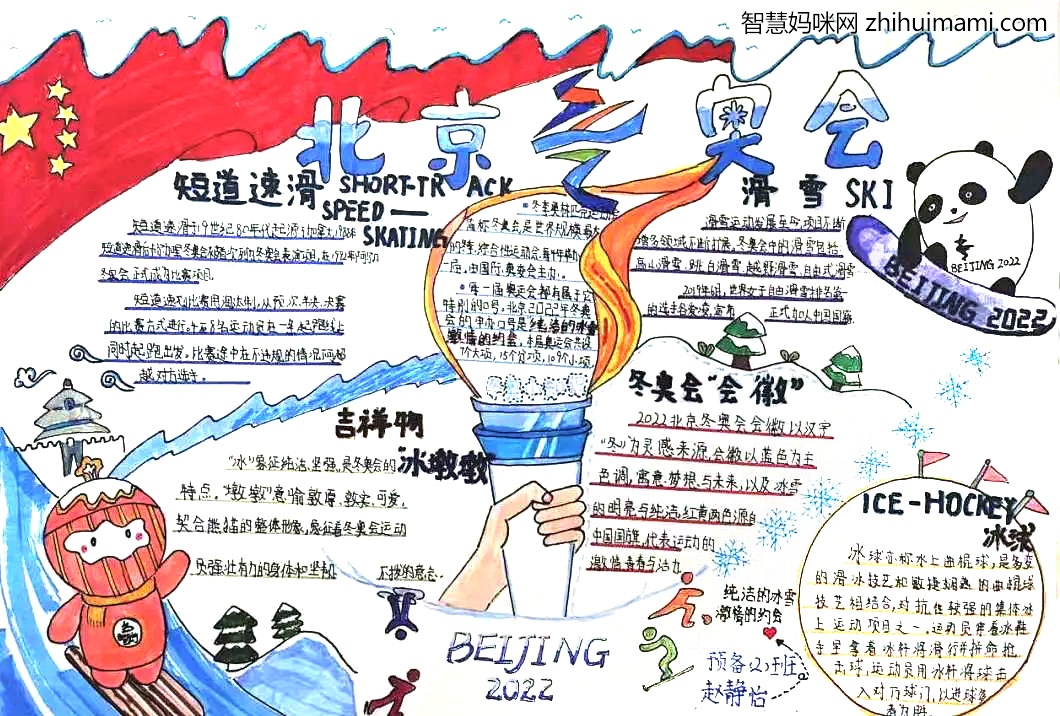 智慧妈咪网 zhihuimami.com
北京冬奥会
短道速滑 SHORT-TRACK
SPEED —
SKATING
短道速滑于19世纪80年代起源于加拿大,1988年
短道速滑后
冬奥会正式成为比赛项目。
短道速
的比赛方式进行。
同时起跑出发,比赛途中在不违规的情况下可超
越对方选手。
冬季奥林匹克运动会
简称冬奥会是世界规模最大
的冬季综合性运动会,每四年举办
一届,由国际奥委会主办。
每一届奥运会都有属于它
特别的口号,北京2022年冬奥
会的申办口号是纯洁的冰雪
激情的约会,本届奥运会共设
7个大项,15个分项,109个小项
滑雪 SKI
滑雪运动发展至今,项目不断
增多,领域不断扩展,冬奥会中的滑雪包括:
高山滑雪、跳台滑雪、越野滑雪、自由式滑雪
2019年6月,世界女子自由滑雪排名第一
的选手谷爱凌,宣布 正式加入中国国籍
BEIJING 2022
BEIJING 2022
吉祥物
"冰墩墩"
"冰"象征纯洁、坚强,是冬奥会的
特点。"墩墩"意喻敦厚、敦实、可爱,
契合熊猫的整体形象,象征着冬奥会运动
员强壮有力的身体和坚韧 不拔的意志。
冬奥会"会徽"
2022北京冬奥会会徽以汉字
"冬"为灵感来源,会徽以蓝色为主
色调,寓意梦想与未来,以及冰雪
的明亮与纯洁,红黄两色源自
中国国旗,代表运动的
激情、青春与活力
ICE-HOCKEY
冰球
冰球亦称冰上曲棍球,是多变
的滑冰技艺和敏捷娴熟的曲棍球
技艺相结合,对抗性较强的集体冰
上运动项目之一,运动员穿着冰鞋
手里拿着冰杆将滑行并拼命抢
击球,运动员用冰杆将球击
入对方球门,以进球多
者为胜。
纯洁的冰雪
激情的约会
预备(2)班
赵静怡
BEIJING
2022